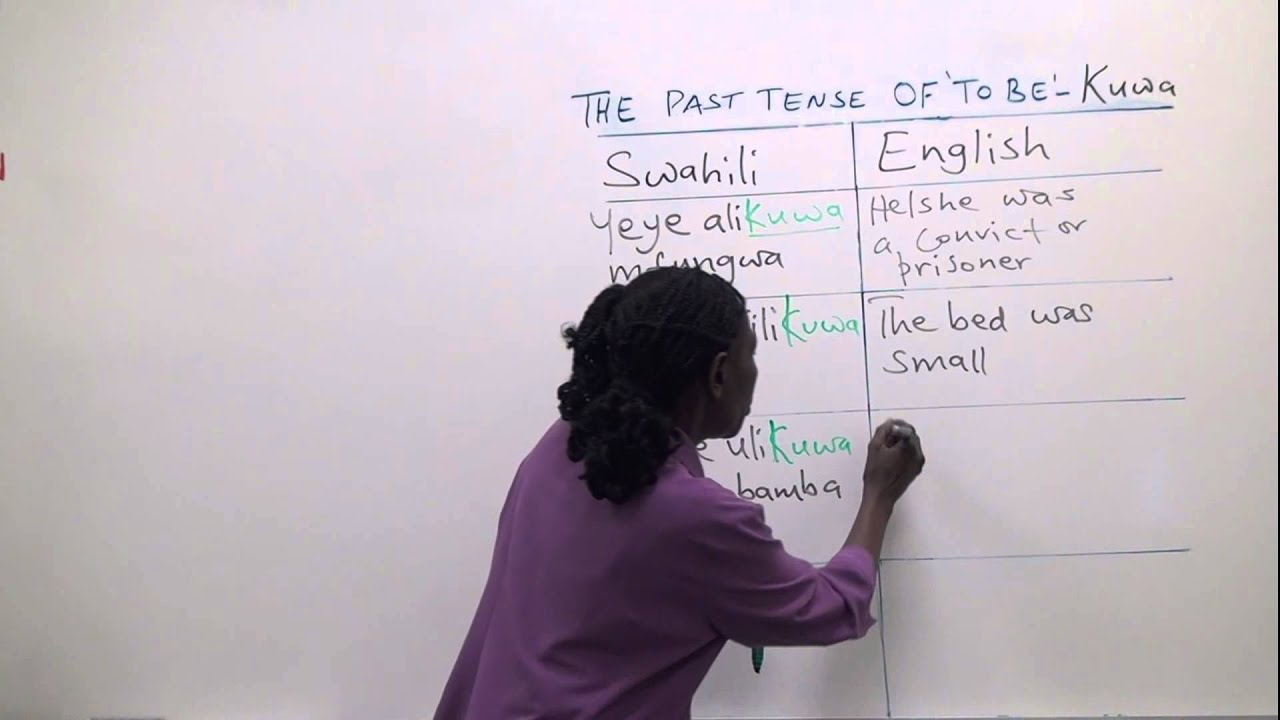 THE PAST TENSE OF 'TO BE' - Kuwa
Swahili
English
Yeye alikuwa
mfungwa
He/she was
a convict or
prisoner
ilikuwa
The bed was
small
ulikuwa
bamba